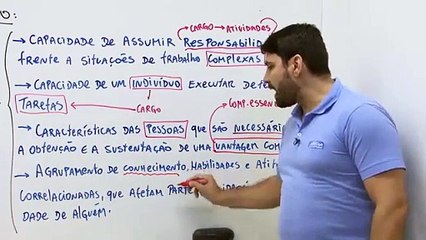 O:
CARGO → ATIVIDADES
→ CAPACIDADE DE ASSUMIR RESPONSABILID
FRENTE A SITUAÇÕES DE TRABALHO COMPLEXAS
→ CAPACIDADE DE UM INDIVÍDUO EXECUTAR DETE
TAREFAS
CARGO
COMP. ESSEN
→ CARACTERÍSTICAS DAS PESSOAS QUE SÃO NECESSÁRI
A OBTENÇÃO E A SUSTENTAÇÃO DE UMA VANTAGEM COM
→ AGRUPAMENTO DE CONHECIMENTO, HABILIDADES E ATIT
CORRELACIONADAS, QUE AFETAM PARTE
DADE DE ALGUÉM.